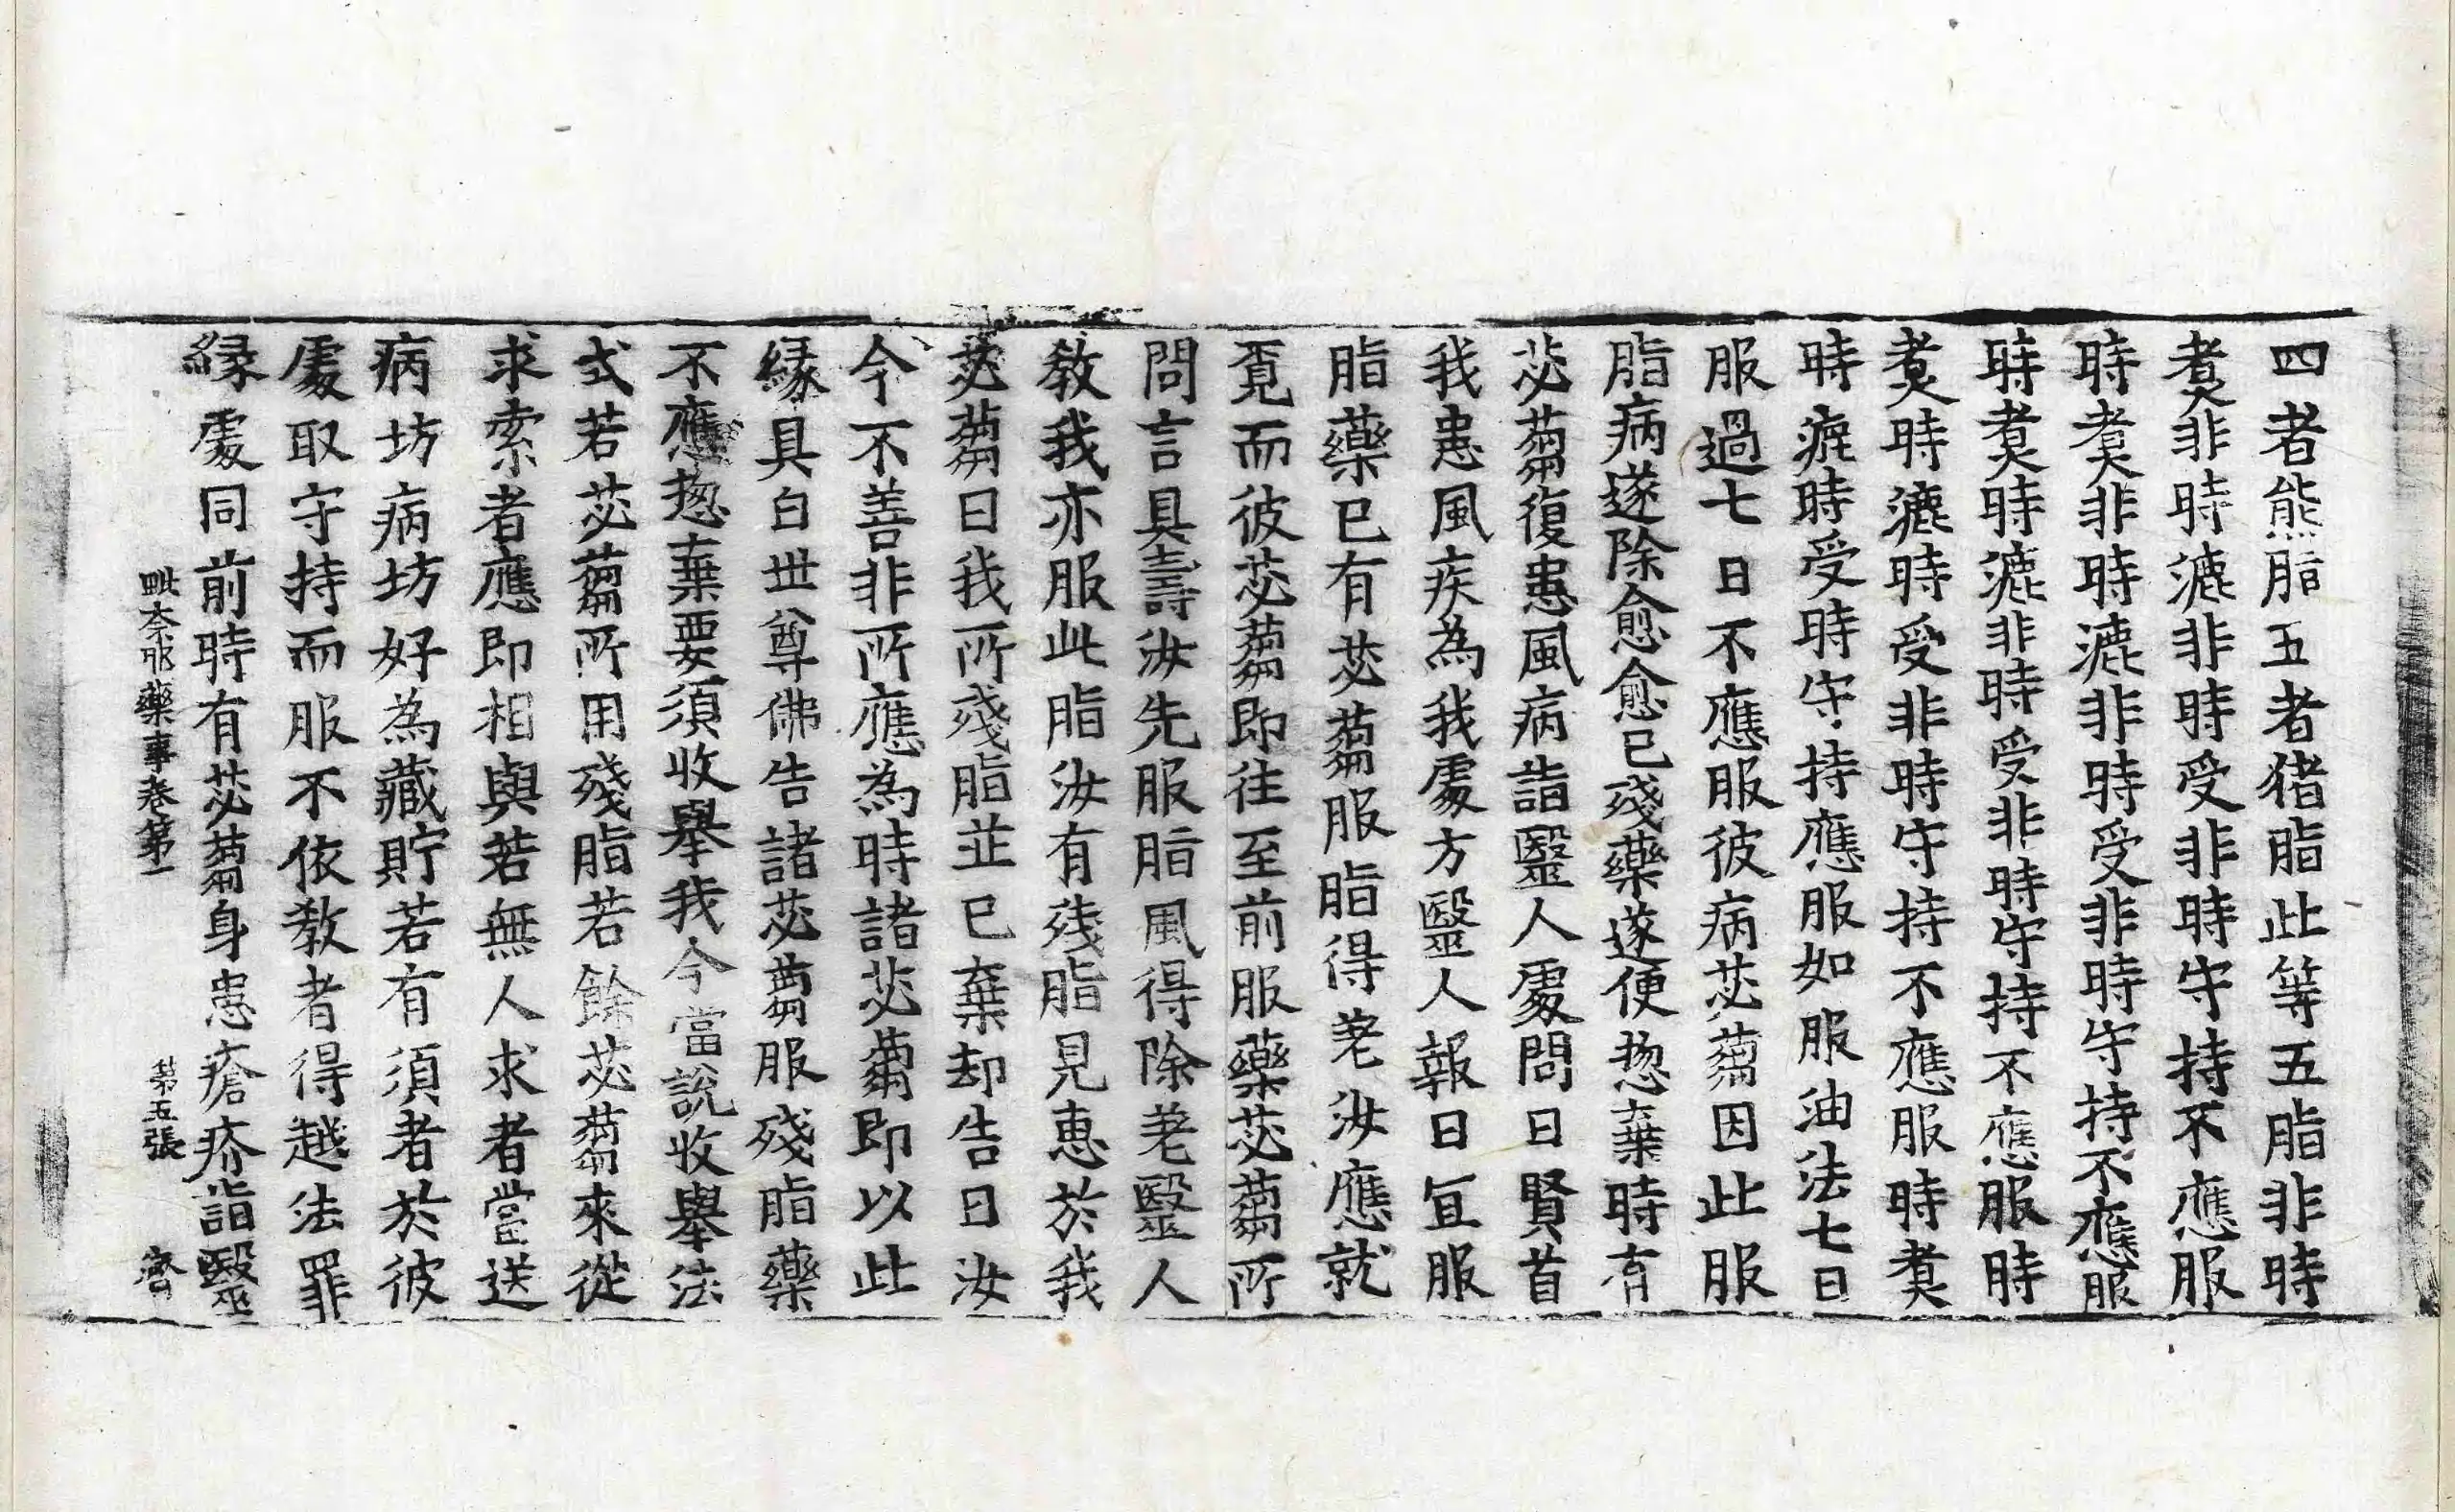 四者熊脂五者猪脂此等五脂非時
煑非時漉非時受非時守持不應服
時煑非時漉非時受非時守持不應服
時煑時漉非時受非時守持不應服時
煑時漉時受非時守持不應服時煑
時漉時受時守持應服如服油法七日
服過七日不應服彼病苾蒭因此服
脂病遂除愈愈已殘藥遂便㧾棄時有
苾蒭復患風病詣醫人處問曰賢首
我患風疾為我處方醫人報曰宜服
脂藥已有苾蒭服脂得差汝應就
覓而彼苾蒭即往至前服藥苾蒭所
問言具壽汝先服脂風得除差醫人
教我亦服此脂汝有殘脂見惠於我
苾蒭曰我所殘脂並已棄却告曰汝
今不善非所應為時諸苾蒭即以此
緣具白世尊佛告諸苾蒭服殘脂藥
不應㧾棄要須收舉我今當說收舉法
式若苾蒭所用殘脂若餘苾蒭來從
求索者應即相與若無人求者當送
病坊病坊好為藏貯若有須者於彼
處取守持而服不依教者得越法罪
緣處同前時有苾蒭身患瘡疥詣醫
毗奈耶藥事卷第一 第五張 濟